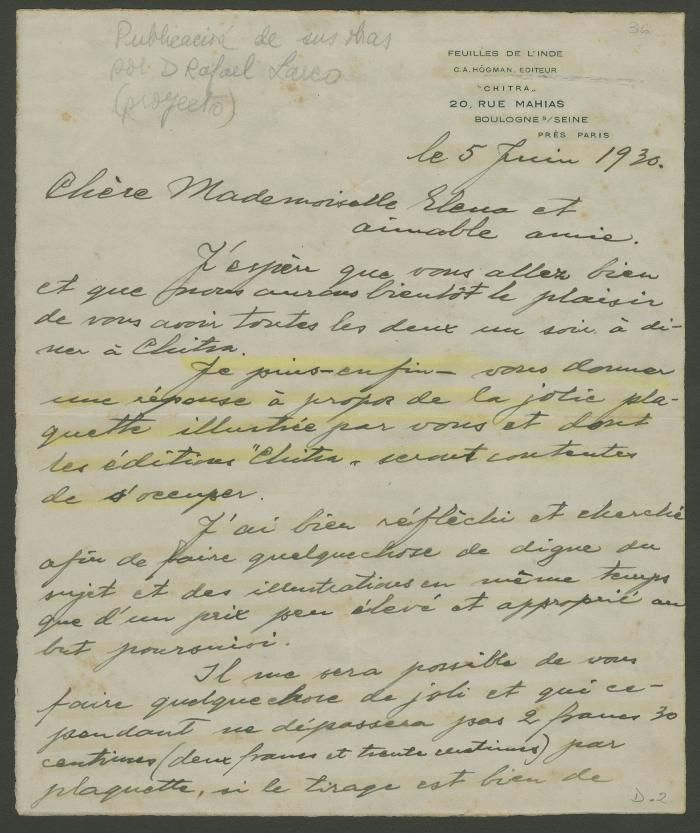 Publicación de sus obras
por D Rafael Larco
(proyecto)
36
FEUILLES DE L'INDE
C.A. HÖGMAN, EDITEUR
"CHITRA„
20, RUE MAHIAS
BOULOGNE S/SEINE
PRÈS PARIS
le 5 Juin 1930.
Chère Mademoiselle Elena et
aimable amie.
J'espère que vous allez bien
et que nous aurons bientôt le plaisir
de vous avoir toutes les deux un soir à di-
ner à Chitra.
Je puis-enfin- vous donner
une réponse à propos de la jolie pla-
quette illustrée par vous et dont
les éditions "Chitra„ seront contentes
de s'occuper.
J'ai bien réflêchi et cherché
afin de faire quelquechose de digne du
sujet et des illustrations en même temps
que d'un prix peu élevé et approprié au
but poursuivi.
Il me sera possible de vous
faire quelquechose de joli et qui ce-
pendant ne dépassera pas 2 francs 30
centimes (deux francs et trente centimes) par
plaquette, si le tirage est bien de
D.2